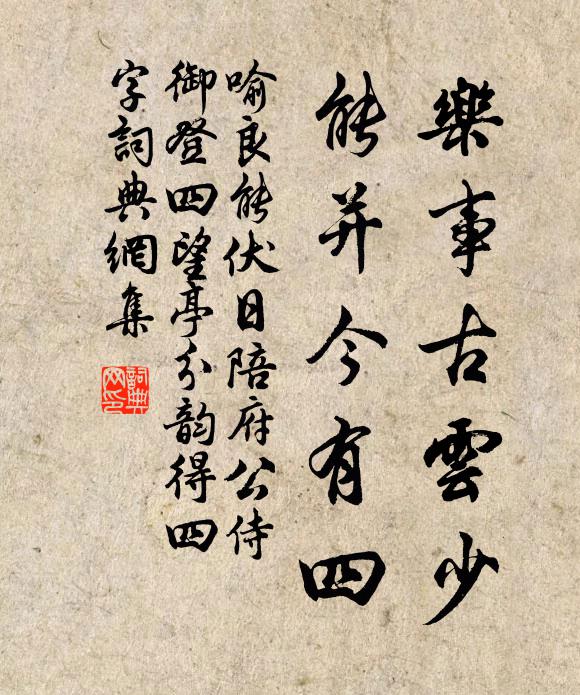 樂事古雲少
能并今有四
喻良能伏日陪府公侍
御登四望亭分韵得四
字詞典網集
詞典網印